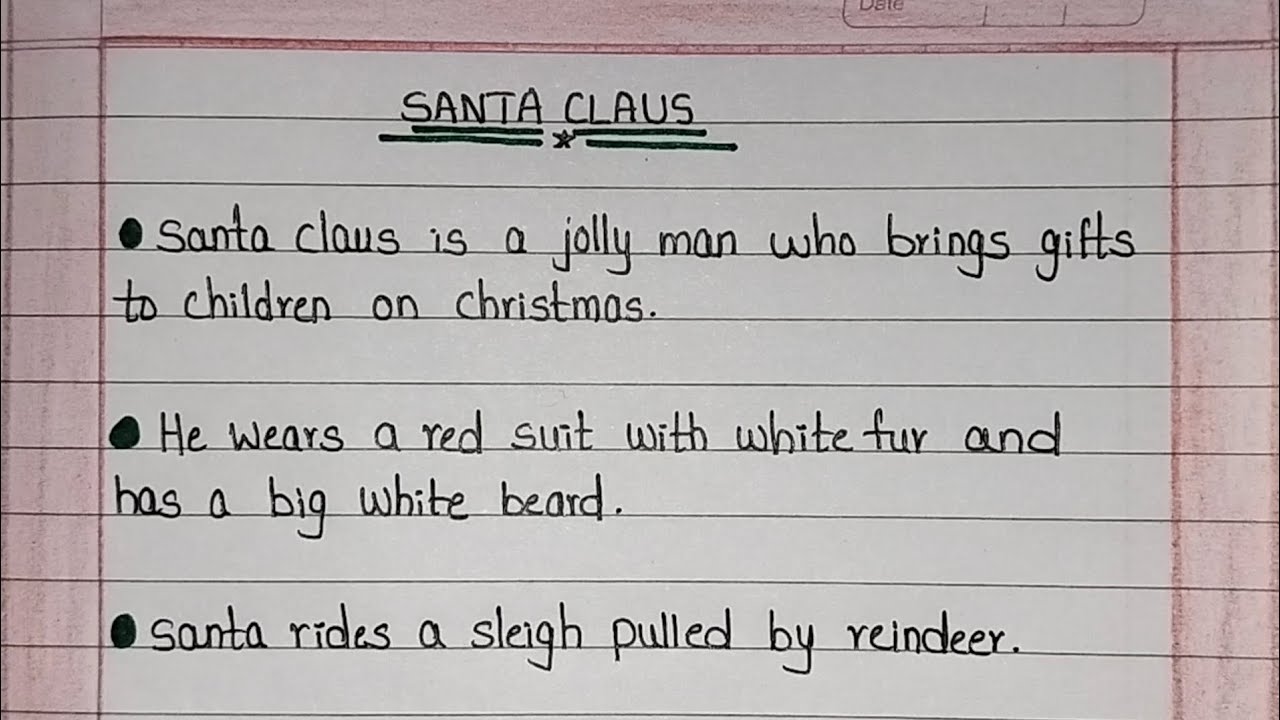 Date
SANTA CLAUS
● Santa claus is a jolly man who brings gifts
to children on christmas.
● He wears a red suit with white fur and
has a big white beard.
● Santa rides a sleigh pulled by reindeer.